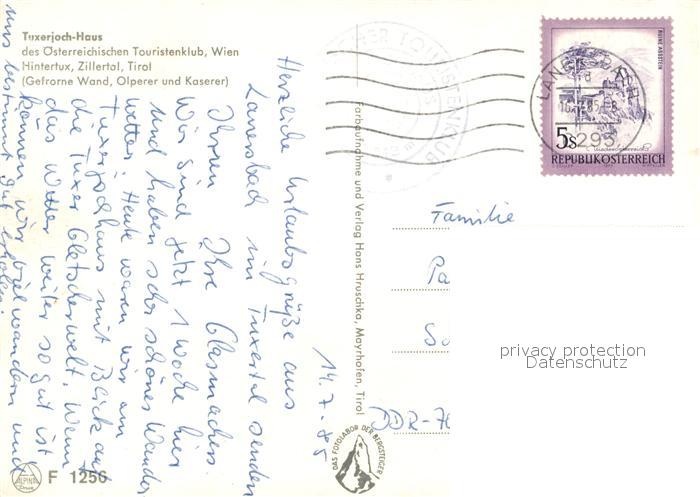 Tuxerjoch-Haus
des Österreichischen Touristenklub, Wien
Hintertux, Zillertal, Tirol
(Gefrorne Wand, Olperer und Kaserer)
14.7.85
Herzliche Urlaubsgrüße aus
Lanersbach im Tuxertal senden
Ihnen Ihre
Wir sind jetzt 1 Woche hier
und haben sehr schönes Wander
wetter. Heute waren wir am
Tuxerjochhaus mit Blick auf
die Tuxer Gletscherwelt. Wenn
das Wetter weiter so gut ist
können wir viel wandern und
uns bestimmt gut erholen.
F 1256
ALPINA
Farbaufnahme und Verlag Hans Hruschka, Mayrhofen, Tirol
DAS FOTOLABOR DER BERGSTEIGER
TOURISTENKLUB
RUINE AGGSTEIN
5S
Niederösterreich
REPUBLIK ÖSTERREICH
Familie
Pa
So
DDR-70
privacy protection
Datenschutz